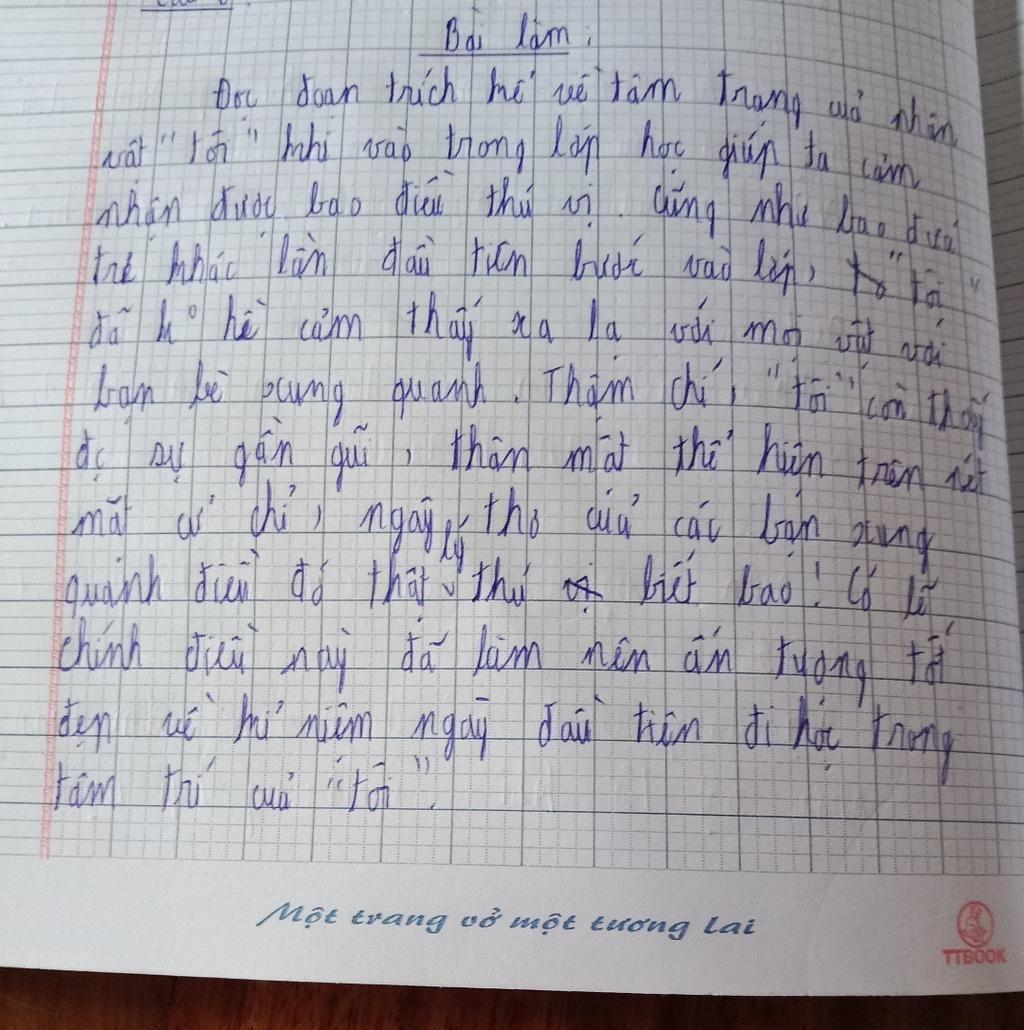 Bài làm:
Đọc đoạn trích kể về tâm trạng của nhân
vật "tôi" khi vào trong lớp học giúp ta cảm
nhận được bao điều thú vị. Cũng như bao đứa
trẻ khác lần đầu tiên bước vào lớp, "tôi"
đã k° hề cảm thấy xa lạ với mọi vật với
bạn bè xung quanh. Thậm chí, "tôi" còn thấy
đc sự gần gũi, thân mật thể hiện trên nét
mặt cử chỉ, ngây thơ của các bạn xung
quanh điều đó thật lý thú biết bao! Có lẽ
chính điều này đã làm nên ấn tượng tốt
đẹp về kỉ niệm ngày đầu tiên đi học trong
tâm trí của "tôi".
Một trang vở một tương lai
TTBOOK